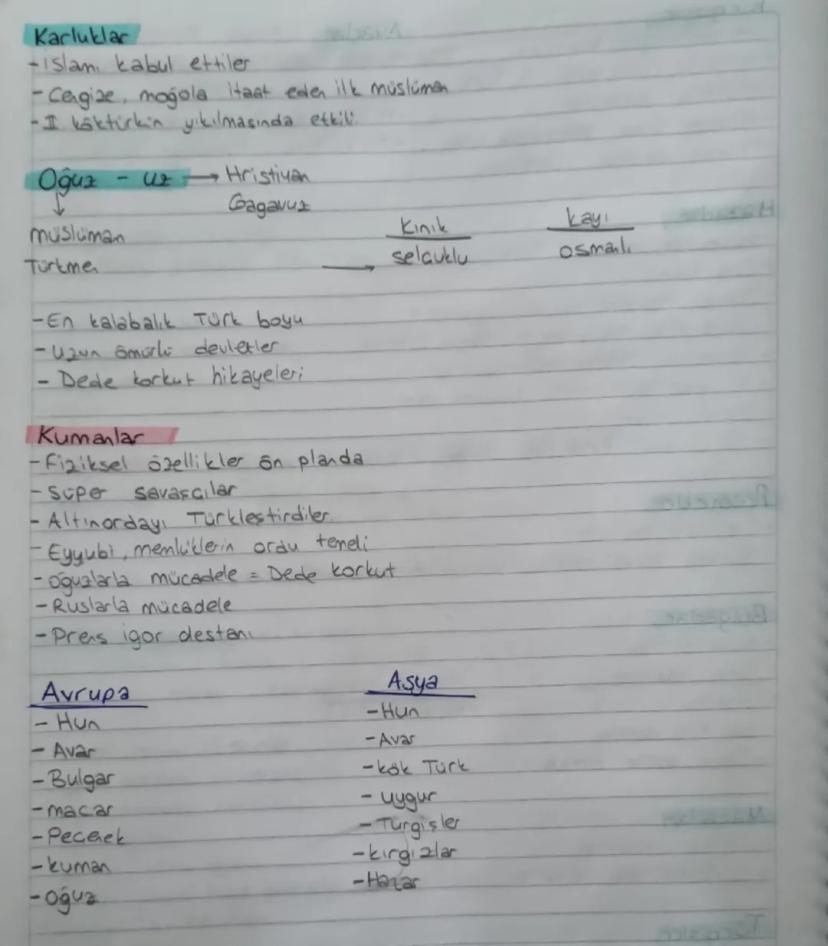 Karluklar
- islamı kabul ettiler
- Cengize, moğola itaat eden ilk müslüman
- II köktürkün yıkılmasında etkili
Oğuz - uz → Hristiyan
Gagavuz
↓
müslüman
Türkmen
→
Kınık
selçuklu
Kayı
osmanlı
- En kalabalık Türk boyu
- uzun ömürlü devletler
- Dede korkut hikayeleri
Kumanlar
- Fiziksel özellikler ön planda
- süper savaşcılar
- Altınordayı Türkleştirdiler
- Eyyubi, memlüklerin ordu temeli
- oğuzlarla mücadele = Dede korkut
- Ruslarla mücadele
- Prens igor destanı
Avrupa
- Hun
- Avar
- Bulgar
- macar
- Peçenek
- kuman
- oğuz
Asya
- Hun
- Avar
- kök Türk
- uygur
- Türgişler
- kırgızlar
- Hazar